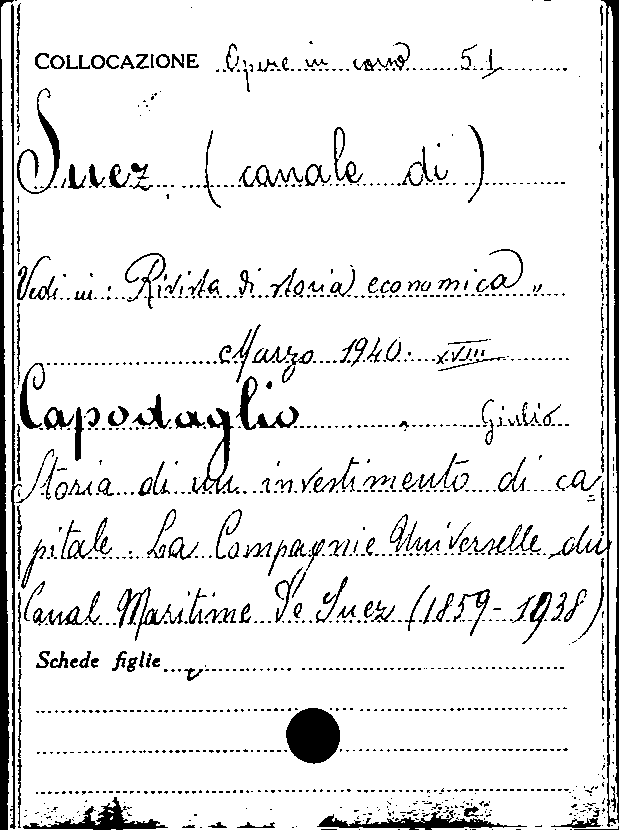 COLLOCAZIONE Opere in corso 51
Suez (canale di)
Vedi in: Rivista di storia economica "
Marzo 1940. XVIII
Capodaglio Giulio
Storia di un investimento di ca=
pitale. La Compagnie Universelle du
Canal Maritime De Suez (1859-1938)
Schede figlie